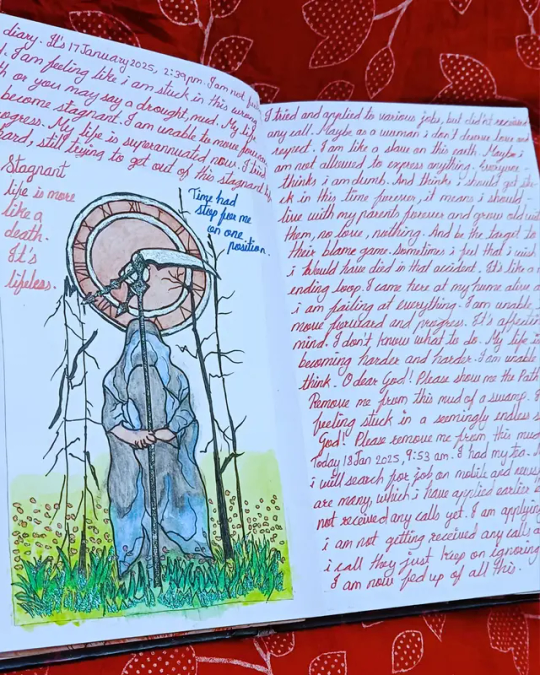 diary. It's 17 January 2025, 2:39 pm. I am not
I am feeling like i am stuck in this wrong
or you may say a drought, mud. My life
become stagnant. I am unable to move forward
progress. My life is superannuated now. I tried
hard, still trying to get out of this stagnant
Stagnant
life is more
like a
death.
It's
lifeless.
Time had
stop for me
on one
position.
I tried and applied to various jobs, but didn't received
any call. Maybe as a woman i don't deserve love and
respect. I am like a slave on this earth. Maybe i
am not allowed to express anything. Everyone
thinks i am dumb. And thinks i should get stu-
ck in this time forever, it means i should
live with my parents forever and grow old with
them, no love, nothing. And be the target to
their blame game. Sometimes i feel that i wish
i would have died in that accident. It's like a
ending loop. I came here at my home alive
i am failing at everything. I am unable
move forward and progress. It's affecting
mind. I don't know what to do. My life is
becoming harder and harder. I am unable
think. O dear God! Please show me the Path
Remove me from this mud of a swamp.
feeling stuck in a seemingly endless
God! Please remove me from, this mud
Today 18 Jan 2025, 9:53 am. I had my tea.
i will search for job on mobile and
are many, which i have applied earlier
not received any calls yet. I am applying
i am not getting received any calls
i call they just keep on ignoring
I am now fed up of all this.